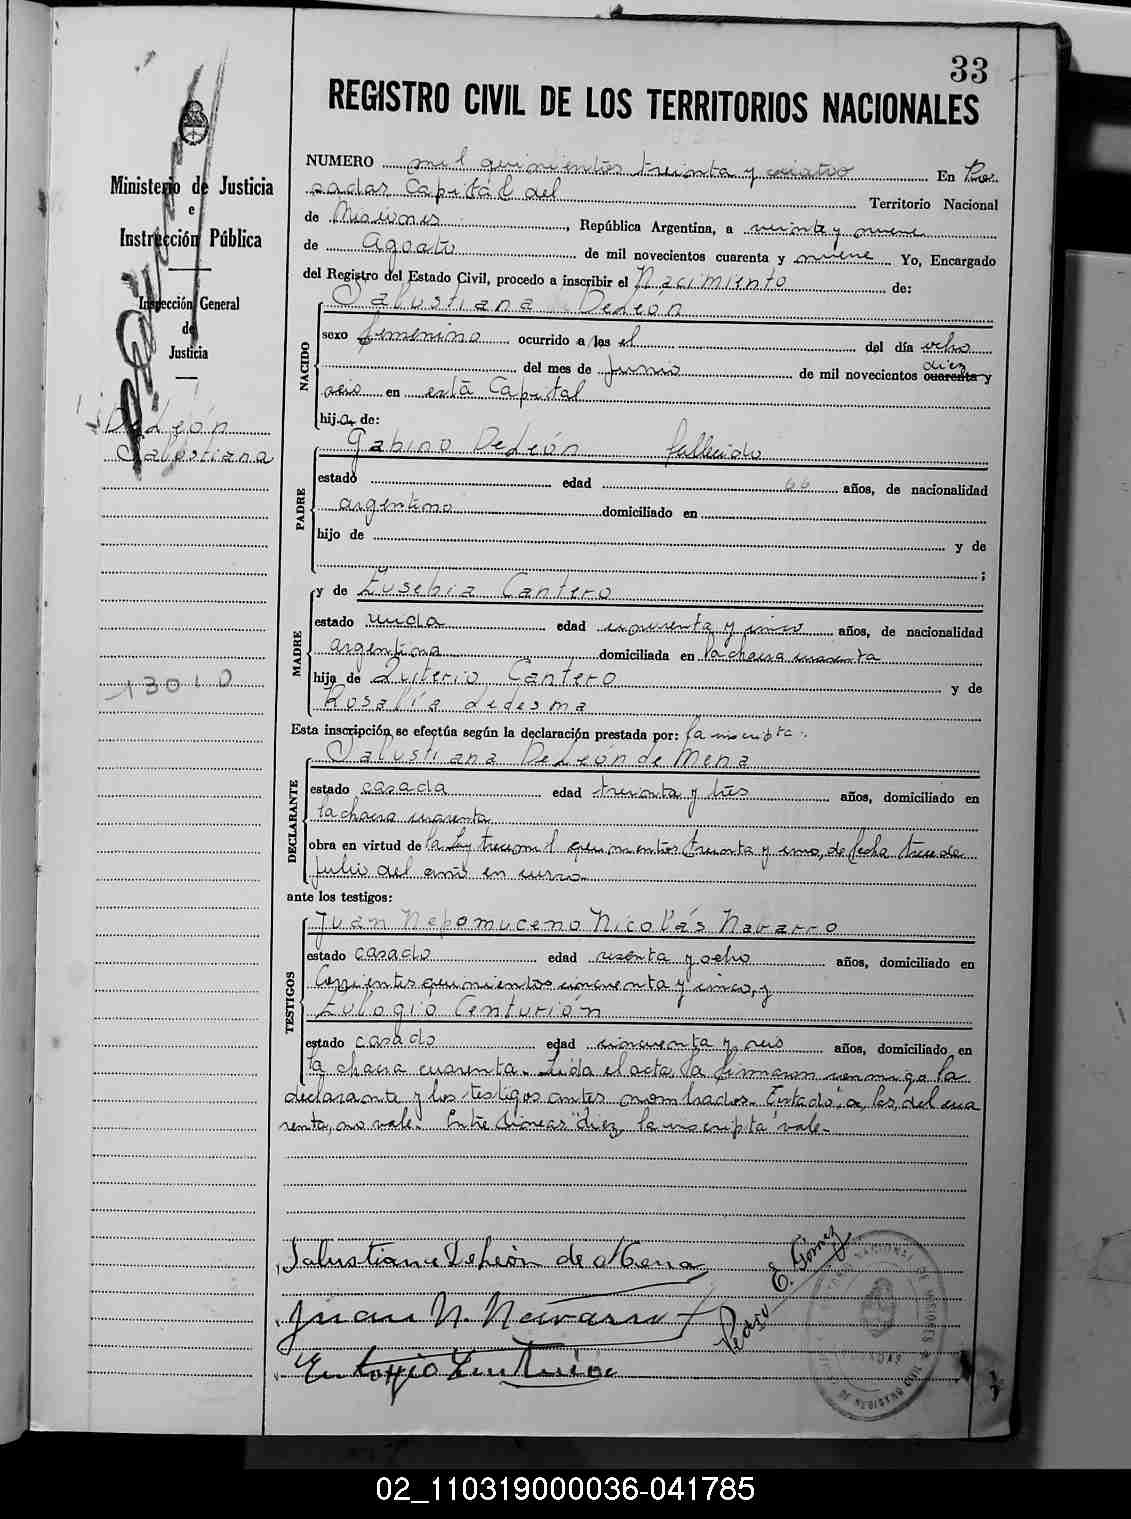 33
REGISTRO CIVIL DE LOS TERRITORIOS NACIONALES
Ministerio de Justicia
e
Instrucción Pública
Inspección General
de
Justicia
DeLeón
Salustiana
13010
NUMERO mil quinientos treinta y cuatro En Po-
sadas Capital del Territorio Nacional
de Misiones, República Argentina, a veinte y nueve
de Agosto de mil novecientos cuarenta y nueve Yo, Encargado
del Registro del Estado Civil, procedo a inscribir el Nacimiento de:
Salustiana DeLeón
NACIDO
sexo femenino ocurrido a las el del día ocho
diez
del mes de Junio de mil novecientos cuarenta y
seis en está Capital
hija de:
Gabino DeLeón fallecido
PADRE
estado edad 66 años, de nacionalidad
argentino domiciliado en
hijo de y de
;
MADRE
y de Eusebia Cantero
estado viuda edad cincuenta y cinco años, de nacionalidad
argentina domiciliada en la chacra cuarenta
hija de Quiterio Cantero y de
Rosalía Ledesma
Esta inscripción se efectúa según la declaración prestada por: la inscripta.
Salustiana DeLeón de Mena
DECLARANTE
estado casada edad treinta y tres años, domiciliado en
la chacra cuarenta
obra en virtud de la Ley trece mil quinientos treinta y uno, de fecha trece de
Julio del año en curso.
ante los testigos:
Juan Nepomuceno Nicolás Navarro
TESTIGOS
estado casado edad sesenta y ocho años, domiciliado en
Corrientes quinientos cincuenta y cinco, y
Eulogio Centurión
estado casado edad cincuenta y seis años, domiciliado en
la chacra cuarenta. Leída el acta la firmaron conmigo la
declarante y los testigos antes nombrados. Testado: a, las, del cua
renta, no vale. Entre líneas "diez, la inscripta" vale.
Salustiana DeLeón de Mena
Juan N. Navarro
Eulogio Centurión
Pedro E. Gómez
02_110319000036-041785